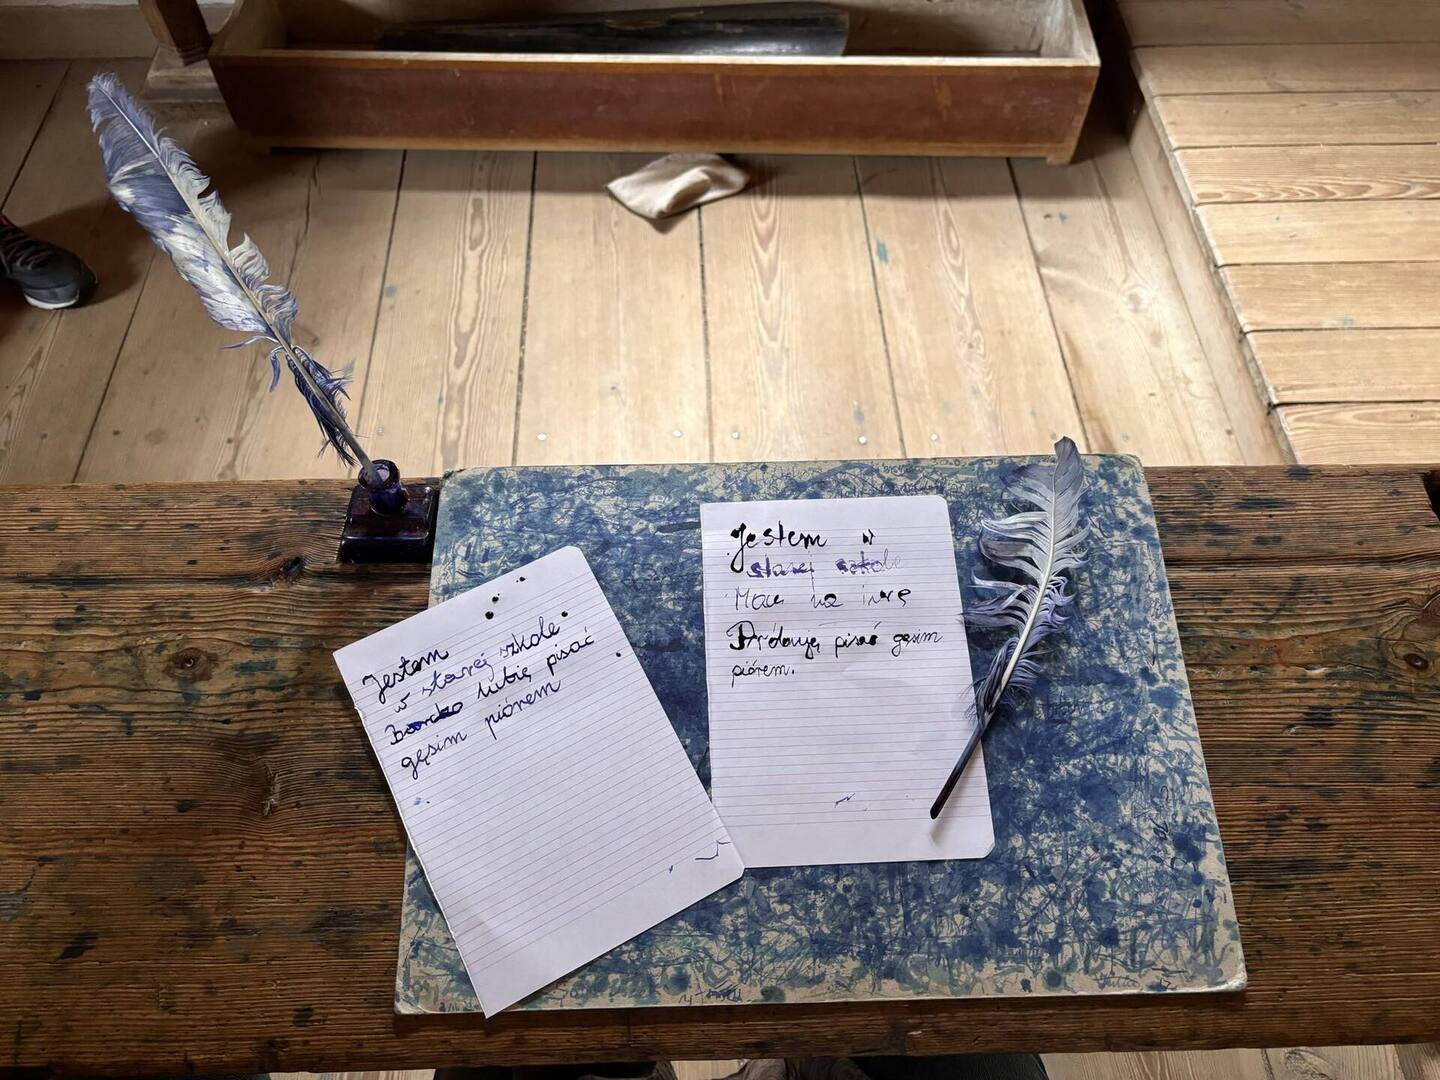 Jestem
w starej szkole.
Bardzo lubię pisać
gęsim piórem
Jestem w
starej szkole
Mam na imię
Próbuję pisać gęsim
piórem.